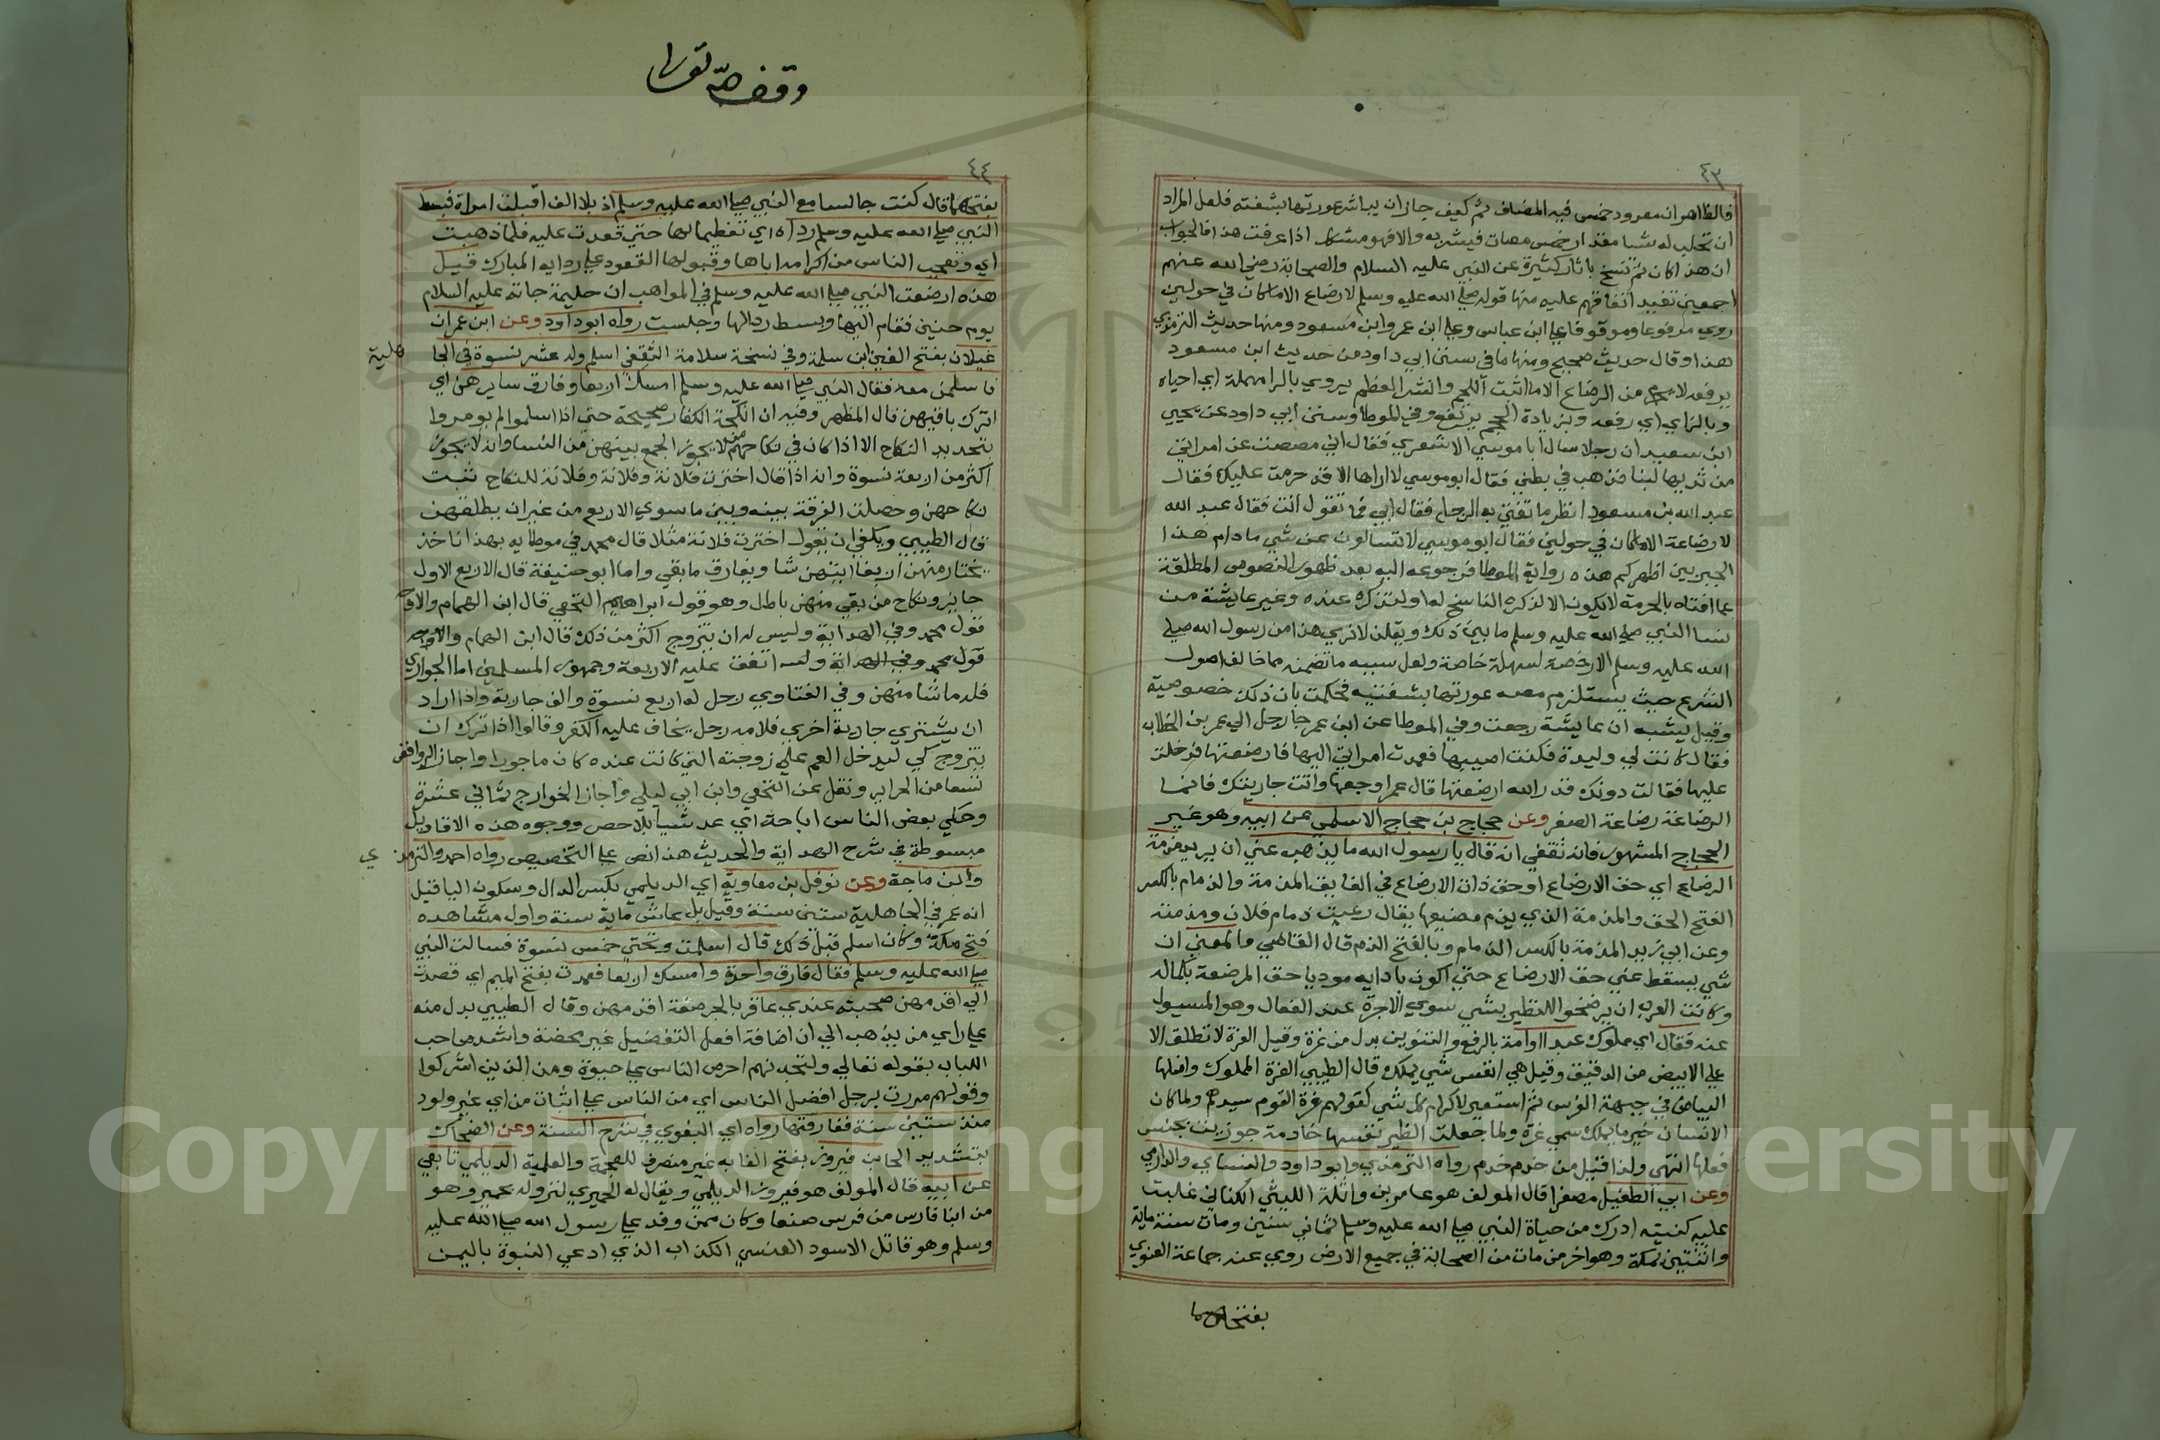 ٤٣
فالظاهر انه مفرود خمس فيه المضاف ثم كيف جاز ان يباشر عورتها بشفته فلعل المراد
ان تحلب له شيا مقدار خمس مصات فيشربه والا فهو مشكل اذا عرفت هذا فالجواب
ان هذا كان ثم نسخ باثار كثيرة عن النبي عليه السلام والصحابة رضي الله عنهم
اجمعين تفيد اتفاقهم عليه منها قوله صلى الله عليه وسلم لا رضاع الا ما كان في حولين
روي مرفوعا وموقوفا على ابن عباس وعلى ابن عمر وابن مسعود ومنها حديث الترمذي
هذا وقال حديث صحيح ومنها ما في سنن ابي داود من حديث ابن مسعود
يرفعه لا يحرم من الرضاع الا ما انبت اللحم وانشر العظم يروي بالرا المهملة اي احياه
وبالزاي اي رفعه وبزيادة الحجم يرتفع وفي الموطا وسنن ابي داود عن يحيى
ابن سعيد ان رجلا سال ابا موسي الاشعري فقال اني مصصت عن امراتي
من ثديها لبنا فذهب في بطني فقال ابو موسي لا اراها الا قد حرمت عليك فقال
عبد الله بن مسعود انظر ما تفتي به الرجل فقال ابي فما تقول انت فقال عبد الله
لا رضاعة الا ما كان في حولين فقال ابو موسي لا تسالون عن شي ما دام هذا
الحبر بين اظهركم هذه رواية الموطا فرجوعه اليه بعد ظهور النصوص المطلقة
عما افتاه بالحرمة لا يكون الا لذكره الناسخ له او لتذكره عنده وغير عايشة من
نسا النبي صلى الله عليه وسلم ما بين ذلك ويقلن لا نري هذا من رسول الله صلى
الله عليه وسلم الا رخصة لسهلة خاصة ولعل سببه ما تضمنه مما خالف اصول
الشرع حيث يستلزم مصه عورتها بشفتيه فحكمت بان ذلك خصوصية
وقيل يشبه ان عايشة رجعت وفي الموطا عن ابن عمر جا رجل الي عمر بن الخطاب
فقال كانت لي وليدة فكنت اصيبها فعمدت امراتي اليها فارضعتها فدخلت
عليها فقالت دونك قد والله ارضعتها قال عمر اوجعها وات جاريتك فانما
الرضاعة رضاعة الصغر وعن حجاج بن حجاج الاسلمي عن ابيه وهو غير
الحجاج المشهور فانه ثقفي انه قال يا رسول الله ما يذهب عني ان يريد مذمة
الرضاع اي حق الارضاع او حق ذات الارضاع في الفايق المذمة والذمام بالكسر
الفتح الحق والمذمة الذي يذم مضيعها يقال رعيت ذمام فلان ومذمته
وعن ابي زيد المذمة بالكسر الذمام وبالفتح الذم قال القاضي والمعني ان
شي يسقط عني حق الارضاع حتي اكون بادايه موديا حق المرضعة بكماله
وكانت العرب ان يرضخوا للظير بشي سوي الاجرة عند الفصال وهو المسيول
عنه فقال اي مملوك عبد او امة بالرفع والتنوين بدل من غرة وقيل الغرة لا تطلق الا
على الابيض من الدقيق وقيل هي انفس شي يملك قال الطيبي الغرة المملوك واصلها
البياض في جبهة الفرس ثم استعير لاكرام كل شي كقولهم غرة القوم سيدهم ولما كان
الانسان خير ما يملك سمي غرة ولما جعلت الظير نفسها خادمة جوزيت بجنس
فعلها انتهى ولذا قيل من خدم خدم رواه الترمذي وابو داود والنساي والدارمي
وعن ابي الطفيل مصغرا قال المولف هو عامر بن واثلة الليثي الكناني غلبت
عليه كنيته ادرك من حياة النبي صلى الله عليه وسلم ثماني سنين ومات سنة ماية
واثنتين بمكة وهو اخر من مات من الصحابة في جميع الارض روي عنه جماعة الغنوي
بفتحهما
وقف لله تعالى
٤٤
بفتحهما قال كنت جالسا مع النبي صلى الله عليه وسلم اذ بلا الف اقبلت امراة فبسط
النبي صلى الله عليه وسلم رداه اي تعظيما لها حتي قعدت عليه فلما ذهبت
اي وتعجب الناس من اكرامه اياها وقبولها القعود علي ردايه المبارك قيل
هذه ارضعت النبي صلى الله عليه وسلم في المواهب ان حليمة جاته عليه السلام
يوم حنين فقام اليها وبسط رداه لها وجلست رواه ابو داود وعن ابن عمر ان
غيلان بفتح الغين ابن سلمة وفي نسخة سلامة الثقفي اسلم وله عشر نسوة في الجا
هلية
فاسلمن معه فقال النبي صلى الله عليه وسلم امسك اربعا وفارق سايرهن اي
اترك باقيهن قال المظهر وفيه ان انكحة الكفار صحيحة حتي اذا اسلموا لم يومروا
بتجديد النكاح الا اذا كان في نكاحهم من لا يجوز الجمع بينهن من النسا وانه لا يجوز
اكثر من اربعة نسوة وانه اذا قال اخترت فلانة وفلانة وفلانة للنكاح ثبت
نكاحهن وحصلت الفرقة بينه وبين ما سوي الاربع من غير ان يطلقهن
قال الطيبي ويكفي ان يقول اخترت فلانة مثلا قال محمد في موطايه بهذا ناخذ
يختار منهن اربعا ايتهن شا ويفارق ما بقي واما ابو حنيفة قال الاربع الاول
جايز ونكاح من بقي منهن باطل وهو قول ابراهيم النخعي قال ابن الهمام والاوجه
قول محمد وفي الهداية وليس له ان يتزوج اكثر من ذلك قال ابن الهمام والاوجه
قول محمد وفي الهداية وله اتفق عليه الاربعة وجمهور المسلمين اما الجواري
فله ما شا منهن وفي الفتاوي رجل له اربع نسوة والف جارية واذا اراد
ان يشتري جارية اخري فلامه رجل يخاف عليه الكفر وقالوا اذا ترك ان
يتزوج كي ليدخل الغم علي زوجته التي كانت عنده كان ماجورا واجاز الروافض
تسعا من الحراير ونقل عن النخعي وابن ابي ليلي واجاز الخوارج ثماني عشرة
وحكي بعض الناس اباحة اي عدد شيا بلا حصر ووجوه هذه الاقاويل
مبسوطة في شرح الهداية والحديث هذا نص علي التخصيص رواه احمد والترمذ ي
وابن ماجة وعن نوفل بن معاوية اي الديلمي بكسر الدال وسكون اليا قيل
انه عمر في الجاهلية ستين سنة وقيل بل عاش ماية سنة واول مشاهده
فتح مكة وكان اسلم قبل ذلك قال اسلمت وتحتي خمس نسوة فسالت النبي
صلى الله عليه وسلم فقال فارق واحدة وامسك اربعا فعمدت بفتح الميم اي قصدت
الي اقدمهن صحبته عندي عاقر بالجر صفة اقدمهن وقال الطيبي بدل منه
علي راي من يذهب الي ان اضافة افعل التفضيل غير محضة وانشد صاحب
اللباب بقوله تعالي ولتجدنهم احرص الناس علي حيوة ومن الذين اشركوا
وقولهم مررت برجل افضل الناس اي من الناس علي اثبات من اي غير ولود
منذ ستين سنة ففارقتها رواه اي البغوي في شرح السنة وعن الضحاك
بتشديد الحا بن فيروز بفتح الفا به غير منصرف للعجمة والعلمية الديلمي تابعي
عن ابيه قال المولف هو فيروز الديلمي ويقال له الحميري لنزوله بحمير وهو
من ابنا فارس من فرس صنعا وكان ممن وفد علي رسول الله صلى الله عليه
وسلم وهو قاتل الاسود العنسي الكذاب الذي ادعي النبوة باليمن
Copyright © King Saud University